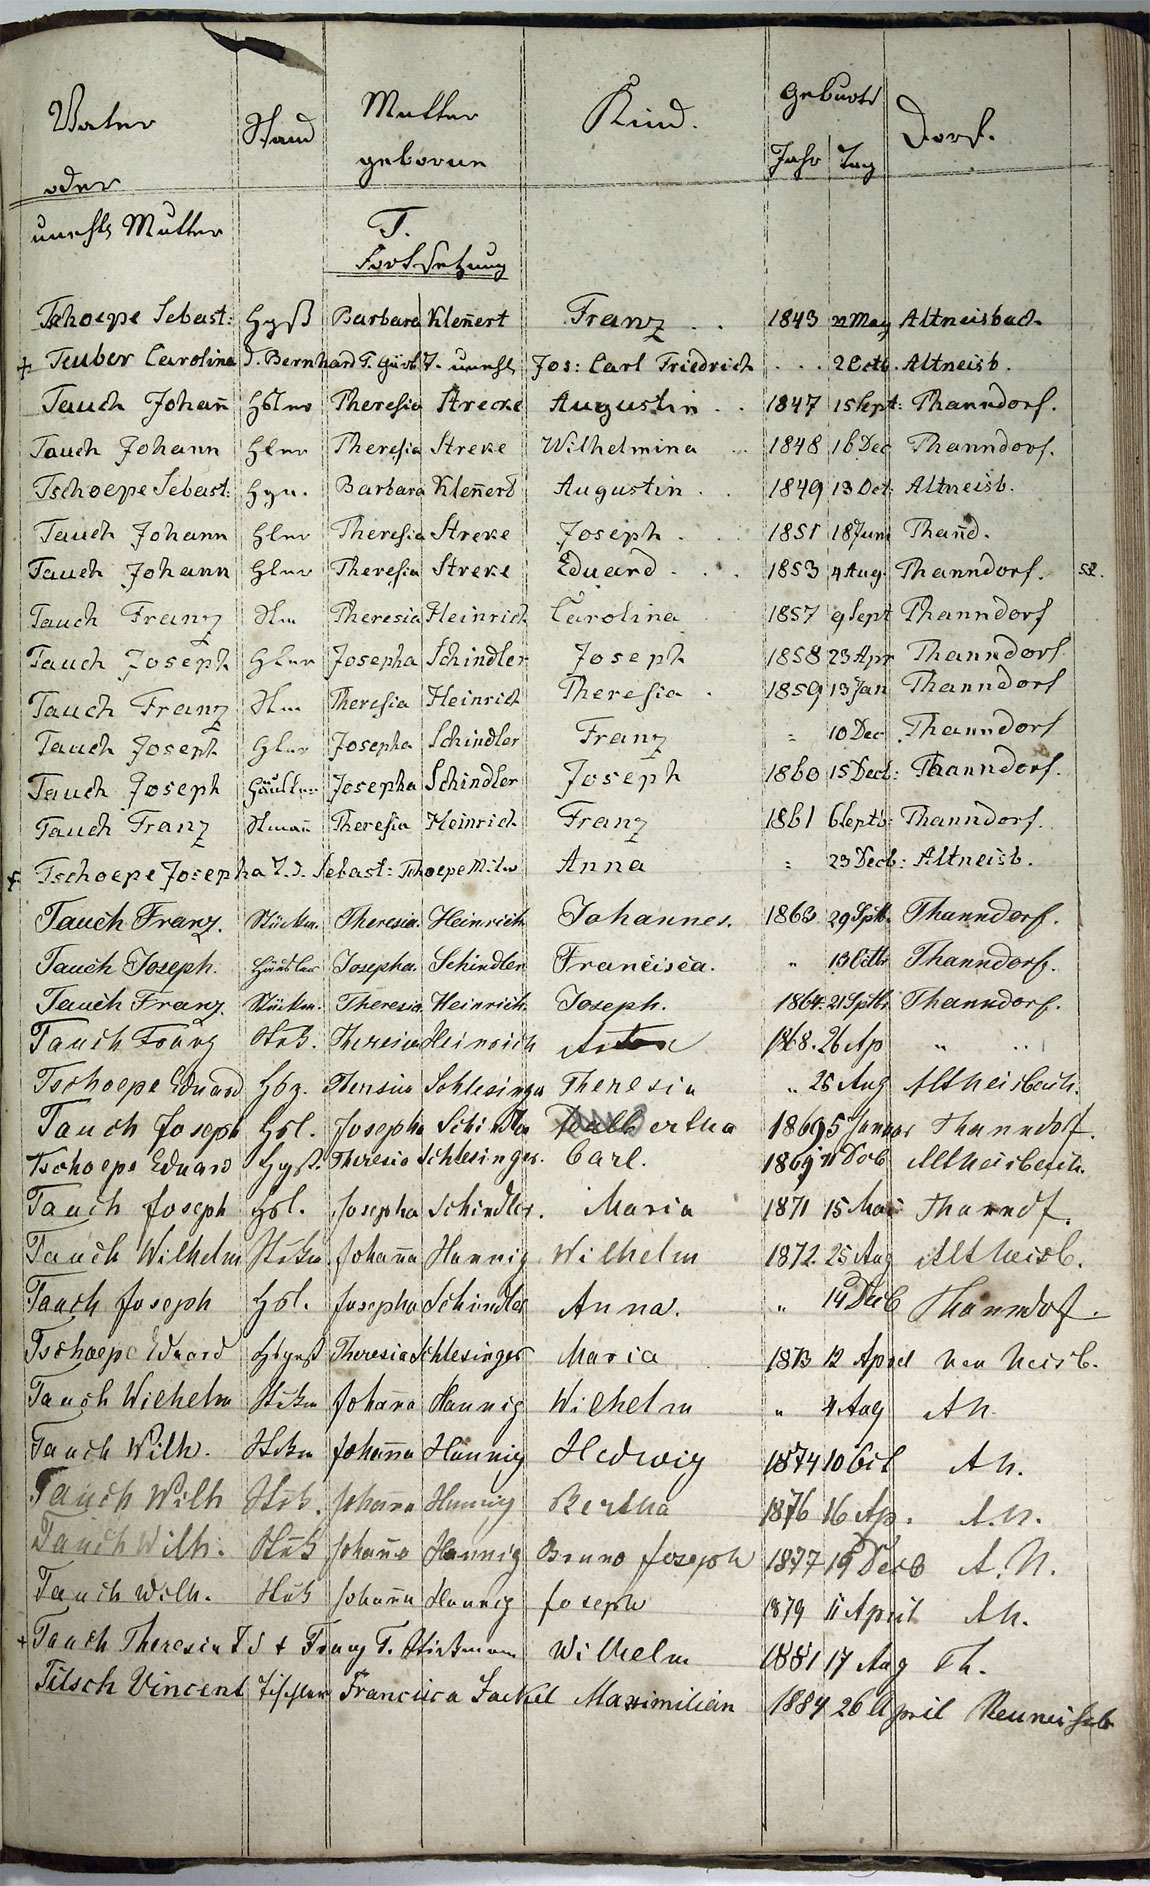 Vater Stand Mutter Kind. Geburts Dorf.
oder geborne Jahr Tag
unehl. Mutter T.
Fortsetzung
Tschoepe Sebast: Hgß Barbara Kleñert Franz . . 1843 22 May Altneisbach
+ Teuber Carolina d. Bernhard T. unehl Jos: Carl Friedrich . . . 2 Octb. Altneisb.
Tauch Johañ Theresia Strecke Augustin . . 1847 1 Sept: Thanndorf.
Tauch Johann Hler Theresia Streke Wilhelmina 1848 16 Dec Thanndorf.
Tschoepe Sebast. Barbara Kleñert Augustin . . 1849 13 Oct. Altneisb.
Tauch Johann Hler Theresia Streke Joseph . . 1851 18 Juni Thañd.
Tauch Johann Hler Theresia Streke Eduard . . . 1853 4 Aug. Thanndorf.
Tauch Franz Theresia Heinrich Carolina 1857 9 Sept Thanndorf
Tauch Joseph Hler Josepha Schindler Joseph 1858 23 Apr Thanndorf.
Tauch Franz Theresia Heinrich Theresia . 1859 13 Jan Thanndorf
Tauch Joseph Hler Josepha Schindler Franz " 10 Dec Thanndorf
Tauch Joseph Josepha Schindler Joseph 1860 15 Decb: Thanndorf.
Tauch Franz Stmañ Theresia Heinrich Franz 1861 6 Septb: Thanndorf.
+ Tschoepe Josepha T. d. Sebast: Tschoepe Anna " 23 Decb: Altneisb.
Tauch Franz. Stückm. Theresia. Heinrich. Johannes. 1863 29 Sptb. Thanndorf.
Tauch Joseph. Häusler Josepha. Schindler Francisca. " 13 Octbr Thanndorf.
Tauch Franz. Stückm. Theresia. Heinrich. Joseph. 1864. 21 Sptbr Thanndorf.
Tauch Franz Stck. Theresia Heinrich 1868. 26 Ap " "
Tschoepe Eduard Hbg. Theresia Schlesinger Theresia " 25 Aug Altneisbach.
Tauch Joseph Hsl. Josepha Schindler 1869 5 Januar Thanndorf.
Tschoepe Eduard Hgß. Theresia Schlesinger. Carl. 1869 Altneisbach.
Tauch Joseph Hsl. Josepha Schindler. Maria 1871 15 Mai Thanndf.
Tauch Wilhelm Stckm. Johañna Hannig Wilhelm 1872. 25 Aug Altneisb.
Tauch Joseph Hsl. Josepha Schindler Anna. " 14 Decb Thanndorf.
Tschoepe Eduard Theresia Schlesinger Maria 1873 12 April Neu Neisb.
Tauch Wilhelm Stckm Johañna Hannig Wilhelm " 4 Aug AN.
Tauch Wilh. Stckm Johañna Hannig Hedwig 1874 10 Oct AN.
Tauch Wilh Stck. Johañna Hannig Bertha 1876 16 Ap. A.N.
Tauch Wilh. Stck Johañna Hannig Bruno Joseph 1877 19 Decb A.N.
Tauch Wilh. Stck Johañna Hannig Joseph 1879 11 April AN.
+ Tauch Theresia T d + Franz T. Stückmann Wilhelm 1881 17 Aug Th.
Titsch Vincent Tischler Francisca Jackel Maximilian 1884 26 April Neuneisb